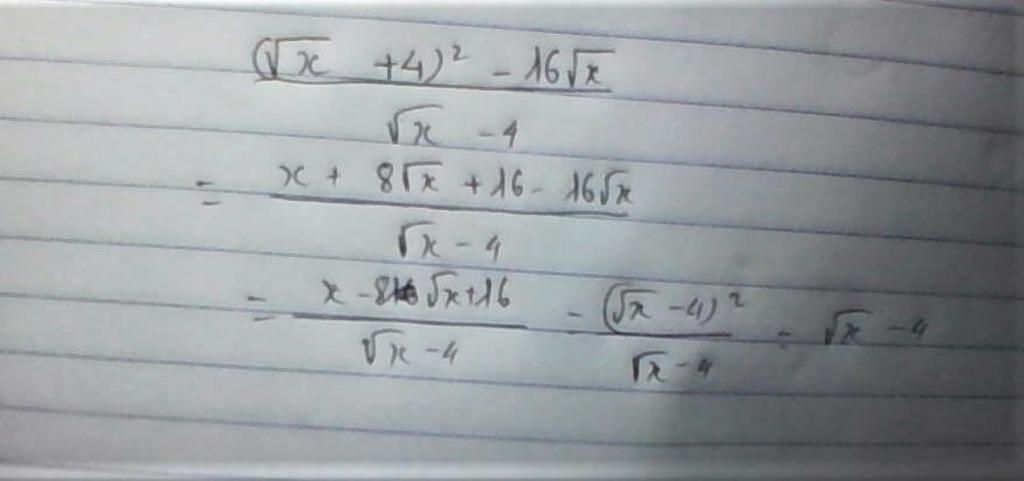 (√x +4)² - 16√x
√x - 4
= x + 8√x + 16 - 16√x
√x - 4
= x - 8√x + 16 = (√x - 4)² = √x - 4
√x - 4 √x - 4